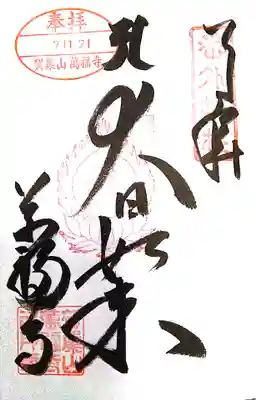 奉拝
7.11.21
賀集山萬福寺
奉拝
大日如来
萬福寺